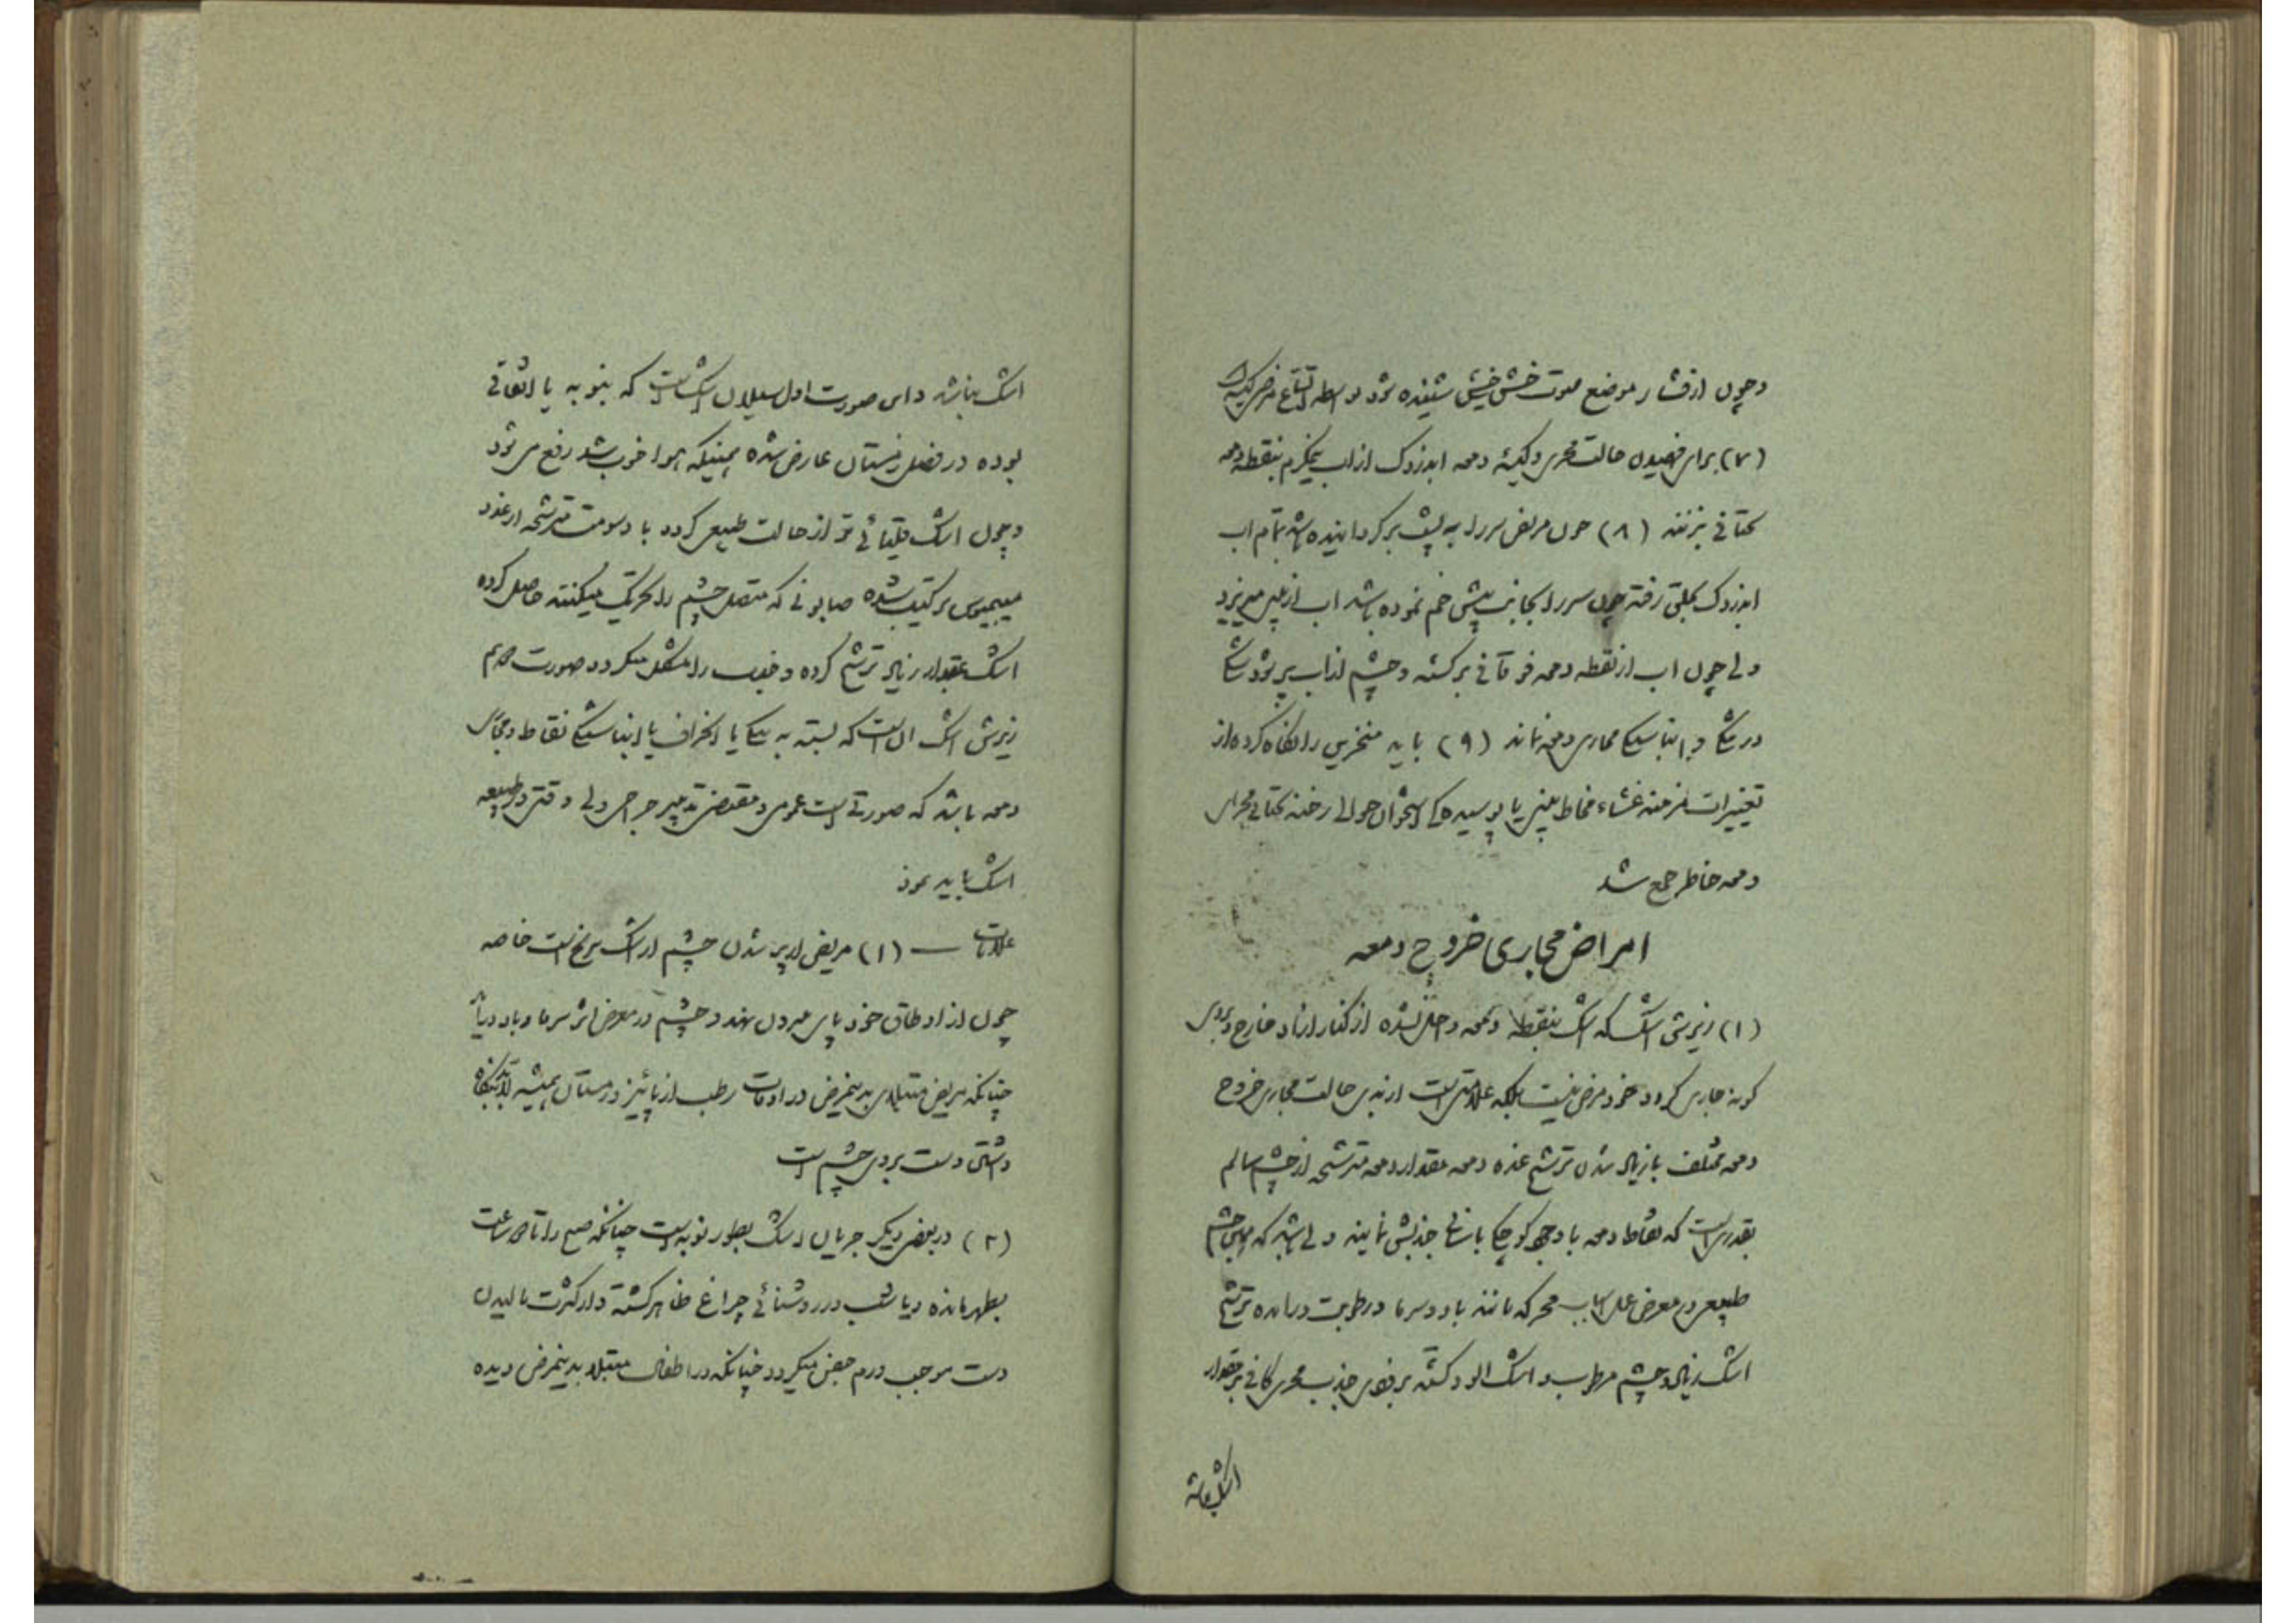 و چون از فشار موضع صوت خش خش شنیده شود بواسطه اتساع مرضی کیسه
(۷) برای فهمیدن حالت مجری و کیسه دمعه ابدزدک از اب نیمگرم بنقطه دمعه
تحتانی بزنند (۸) چون مریض سر را به پشت برگردانیده باشد تمام اب
ابدزدک بحلق رفته چون سر را بجانب پیش خم نموده باشد اب از بینی میریزد
ولی چون اب از نقطه دمعه فوقانی برگشته و چشم از اب پر شود شکی
در تنگی و انباستگی مجاری دمعه نماند (۹) باید منخرین را نگاه کرده از
تغییرات مزمنه غشاء مخاط بینی یا پوسیده‌گی استخوان حوالی رخنه تحتانی مجرای
دمعه خاطر جمع شد
امراض مجاری خروج دمعه
(۱) ریزش اشک که اشک بنقطه دمعه داخل نشده از کنار ازاد خارج و بروی
گونه جاری گردد خود مرض نیست بلکه علامتی است از بدی حالت مجاری خروج
دمعه مختلف با زیاد شدن ترشح غده دمعه مقدار دمعه مترشحه از چشم سالم
بقدری است که نقاط دمعه با وجود کوچکی باسانی جذبش نمایند ولی باشد که چون چشم
طبیعی در معرض علل و اسباب محرکه مانند باد و سرما و رطوبت درامده ترشح
اشک زیاد و چشم مرطوب و اشک الود گشته بر قوه جذب مجری کافی بر مقدار
اشک نباشد
اشک نباشد و این صورت اول سیلان اشک است که بنوبه یا اتفاقی
بوده در فصل زمستان عارض شده همینکه هوا خوب شد رفع می شود
و چون اشک قلیائی تر از حالت طبیعی گردد با دسومت مترشحه از غدد
میبمیوس ترکیب شده صابونی که متصل چشم را تحریک میکنند حاصل کرده
اشک بمقدار زیاد ترشح کرده و جذب را مشکل میگردد صورت دویم
ریزش اشک ان است که بسته به تنگی یا انحراف یا انباستگی نقاط و مجاری
دمعه باشد که صورتی است عمومی و مقتضی تدبیر جراحی ولی دقتی در طبیعه
اشک باید نمود
علامات — (۱) مریض از پر شدن چشم از اشک برنج است خاصه
چون از اوطاق خود پای بیرون نهد و چشم در معرض اثر سرما و باد دراید
چنانکه مریض مبتلای بدینمرض در اوقات رطب از پائیز و زمستان همیشه
داشتن دست بروی چشم است
(۲) در بعضی دیگر جریان اشک بطور نوبه است چنانکه صبح را تا ساعت
بظهر مانده و یا شب در روشنائی چراغ ظاهر گشته و از کثرت مالیدن
دست موجب ورم جفن میگردد چنانکه در اطفال مبتلا بدینمرض دیده